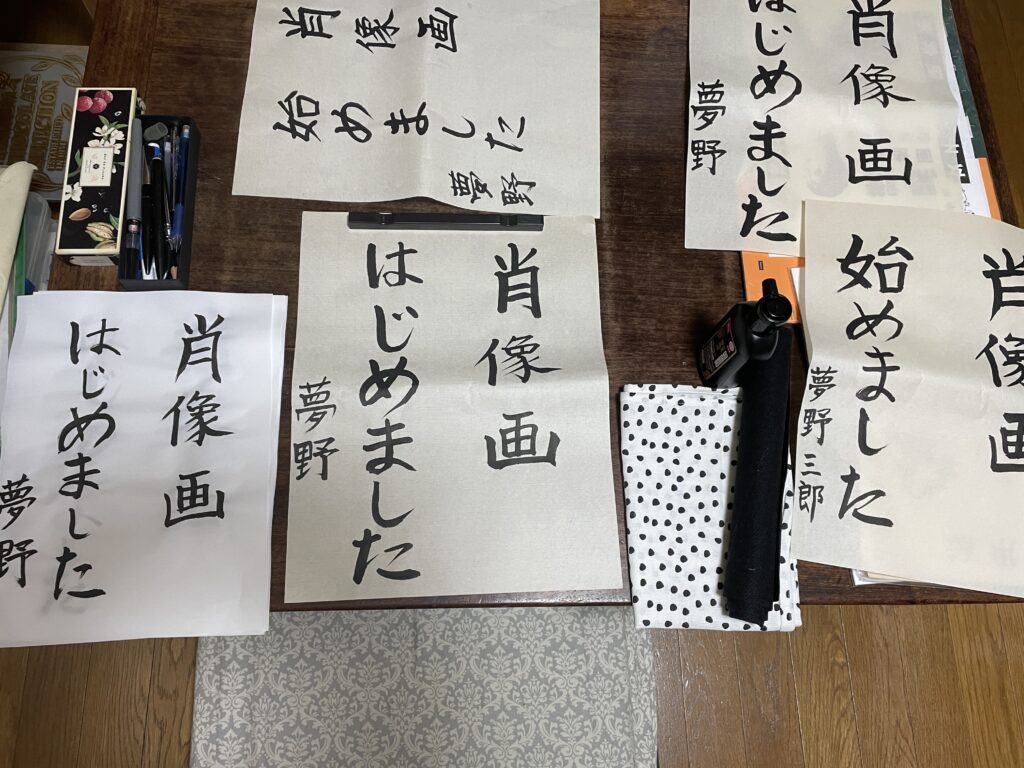 肖像画
始めました
夢野
肖像画
はじめました
夢野
肖像画
はじめました
夢野
肖像画
はじめました
夢野
肖像画
始めました
夢野三郎